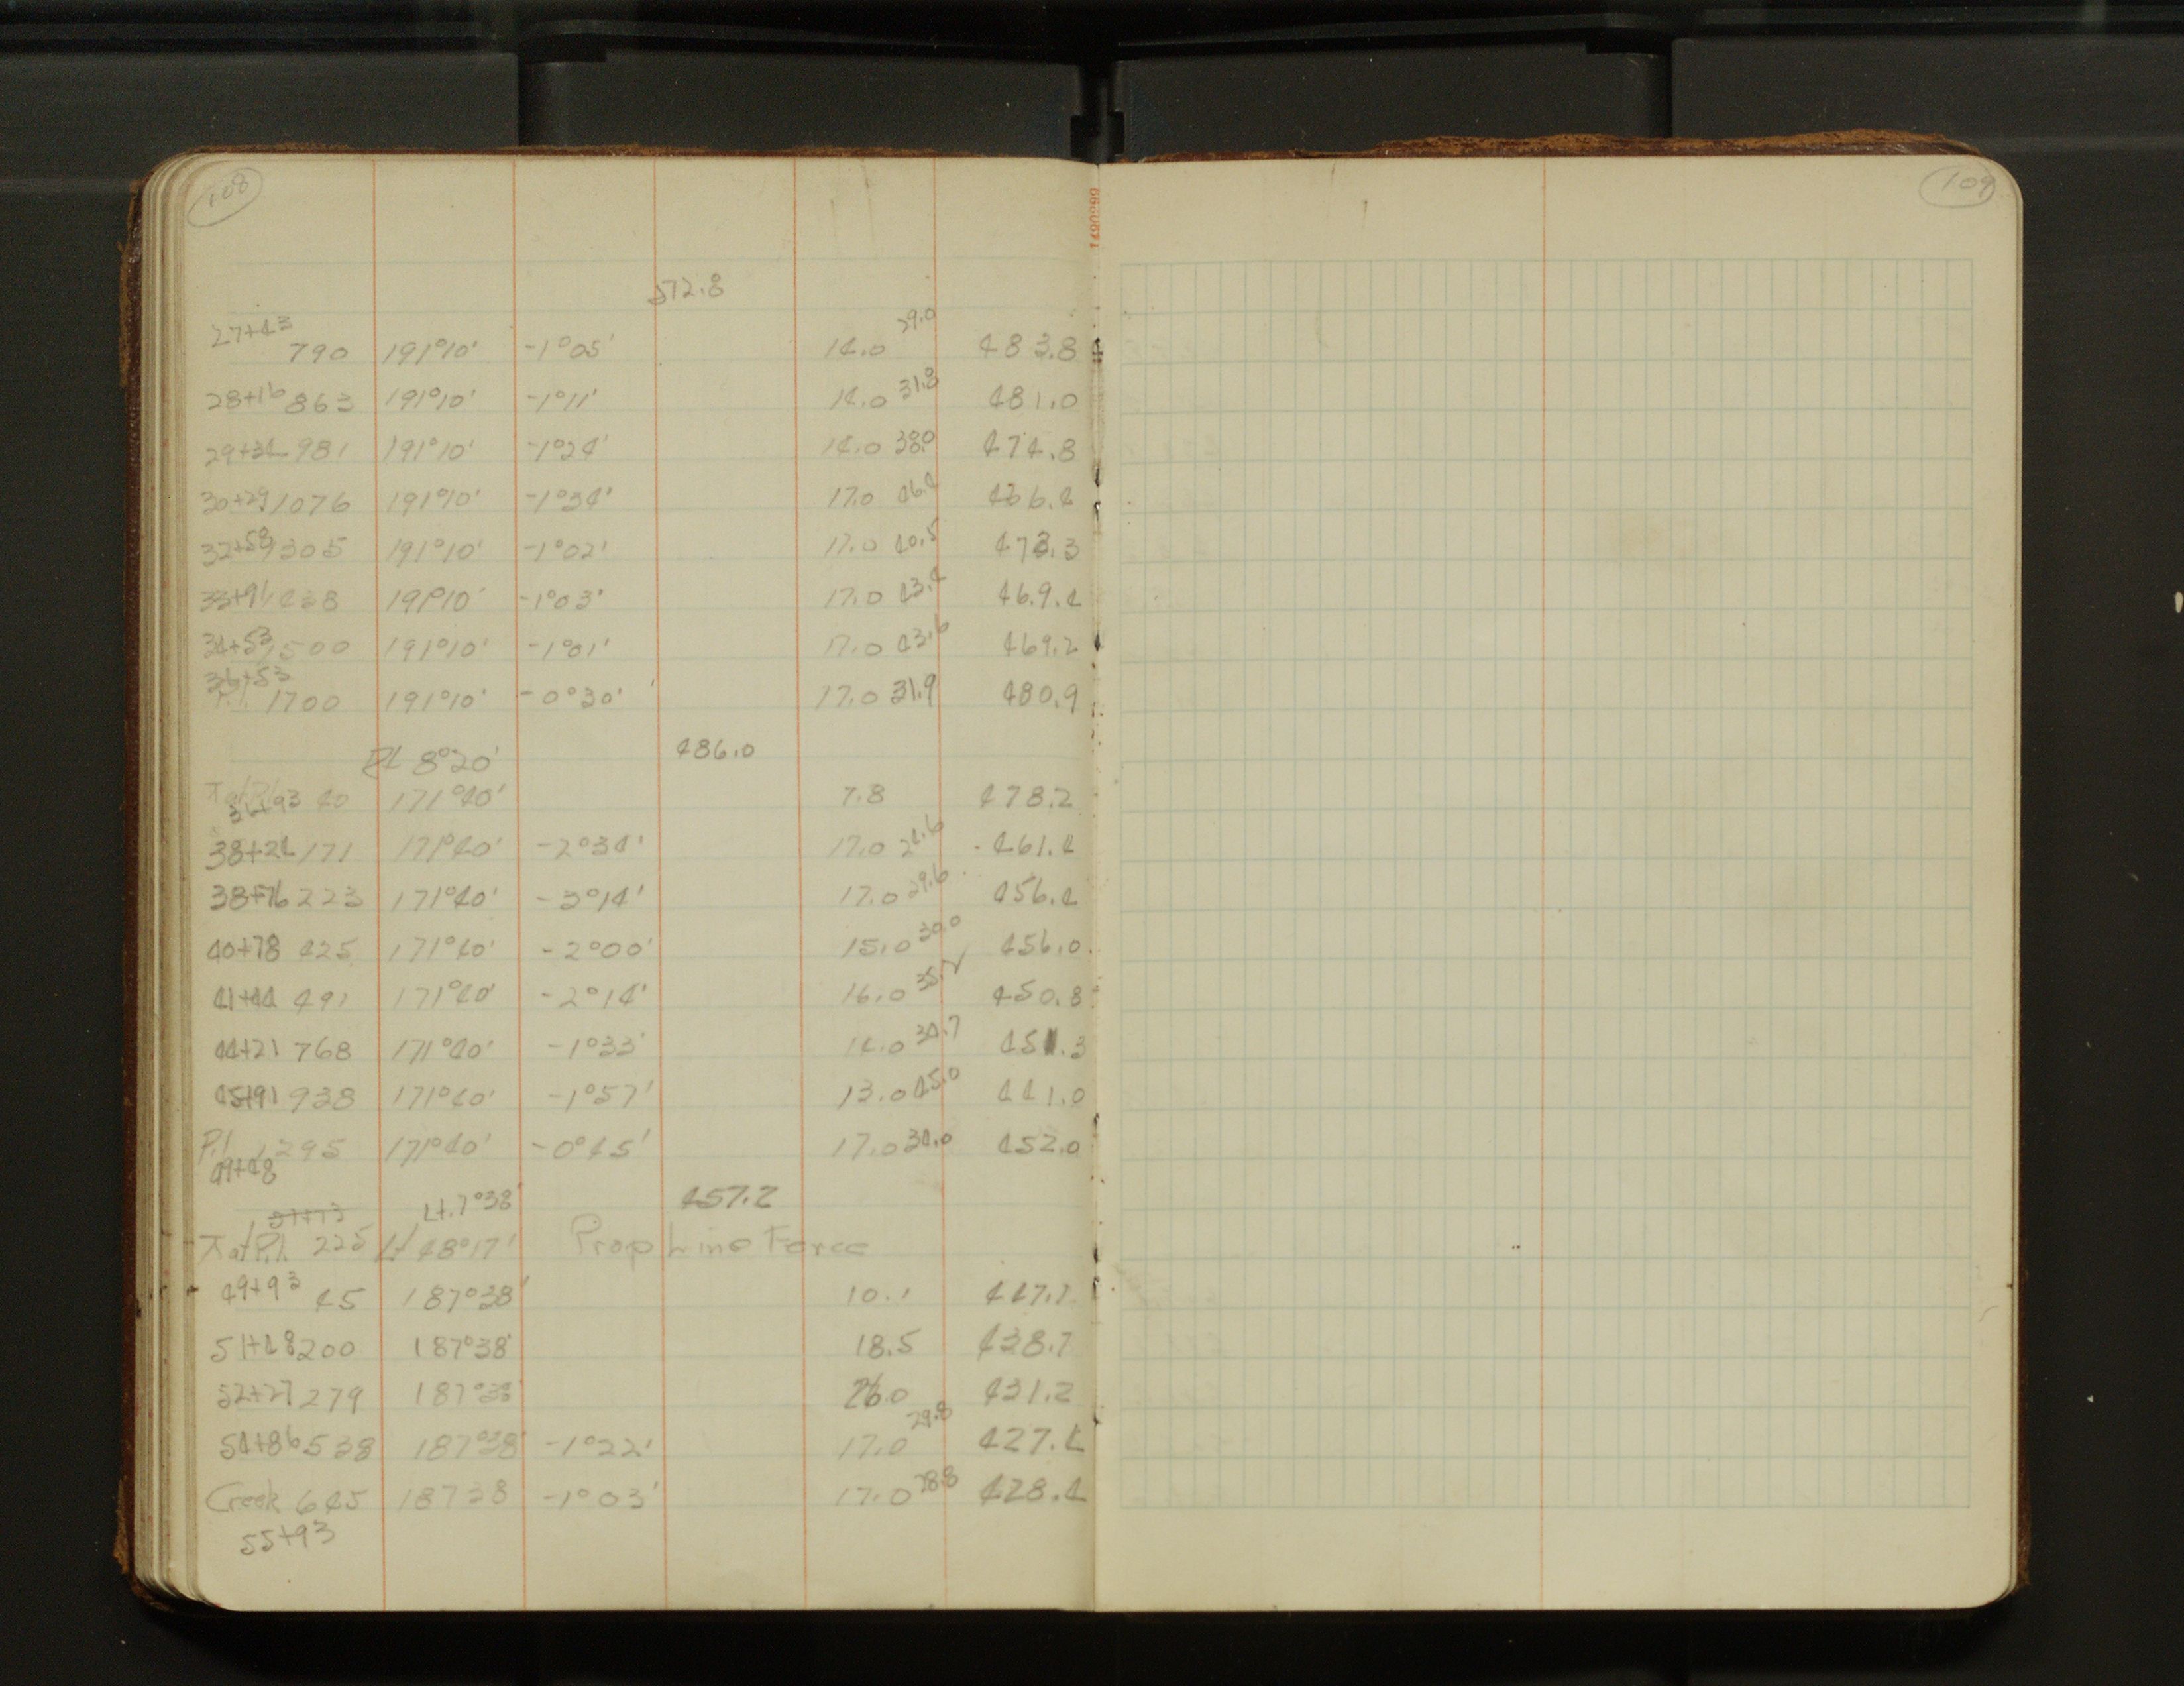 108
512.8
27+43 790 191°10' -1°05' 14.0 29.0 483.8
28+16 863 191°10' -1°11' 14.0 31.8 481.0
29+34 981 191°10' -1°24' 14.0 38.0 474.8
30+29 1076 191°10' -1°34' 17.0 46.4 466.4
32+58 1305 191°10' -1°02' 17.0 40.5 472.3
33+91 1438 191°10' -1°03' 17.0 43.4 469.4
34+53 1500 191°10' -1°01' 17.0 43.6 469.2
36+53
P.I. 1700 191°10' -0°30' 17.0 31.9 480.9
Rt 8°20' 486.0
⊼ at P.I.
36+93 40 171°40' 7.8 478.2
38+24 171 171°40' -2°34' 17.0 24.6 461.4
38+76 223 171°40' -3°14' 17.0 29.6 456.4
40+78 425 171°40' -2°00' 15.0 30.0 456.0
41+44 491 171°40' -2°14' 16.0 35.2 450.8
44+21 768 171°40' -1°33' 14.0 34.7 451.3
45+91 938 171°40' -1°57' 13.0 45.0 441.0
P.I. 1295 171°40' -0°45' 17.0 34.0 452.0
49+48
51+73 Lt. 7°38' 457.2
⊼ at P.I. 225 Lt 48°17' Prop Line Fence
49+93 45 187°38' 10.1 447.1
51+48 200 187°38' 18.5 438.7
52+27 279 187°38' 26.0 431.2
54+86 538 187°38' -1°22' 17.0 29.8 427.4
Creek 645 187 38 -1°03' 17.0 28.8 428.4
55+93
1490899
109